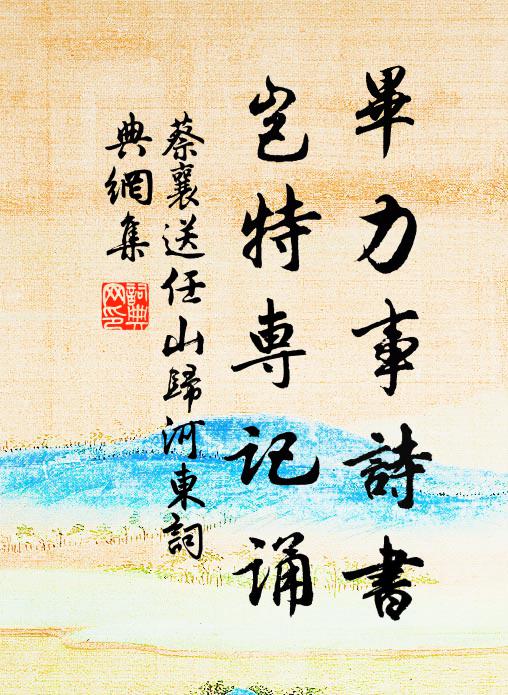 畢力事詩書
豈特専記誦
蔡襄送任山歸河東詞
典網集
詞典
网印